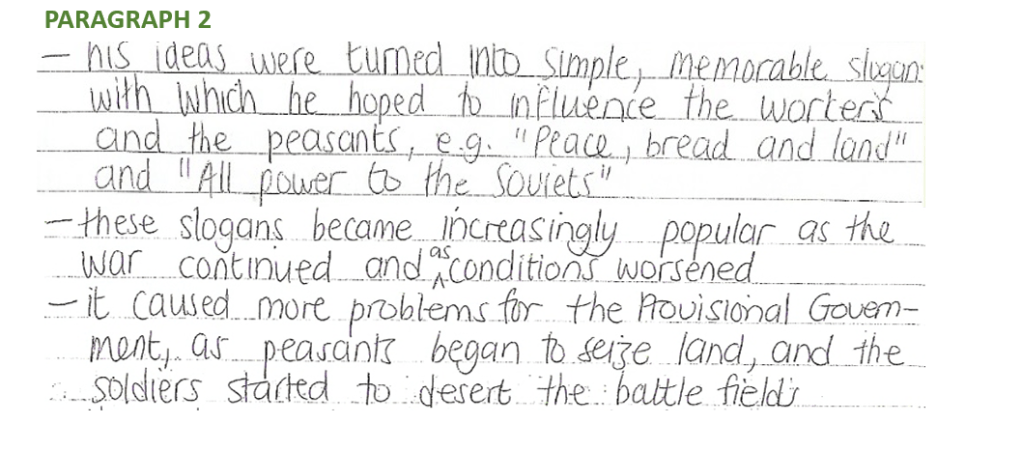 PARAGRAPH 2
– his ideas were turned into simple, memorable slogans
with which he hoped to influence the workers
and the peasants, e.g. "Peace, bread and land"
and "All power to the Soviets"
– these slogans became increasingly popular as the
war continued and as conditions worsened
– it caused more problems for the Provisional Govern-
ment, as peasants began to seize land, and the
soldiers started to desert the battle fields